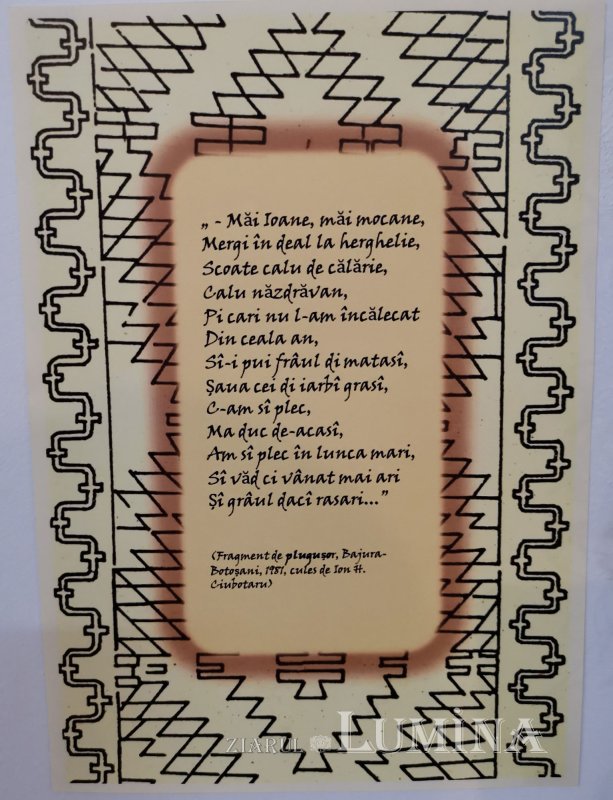 „ - Măi Ioane, măi mocane,
Mergi în deal la herghelie,
Scoate calu de călărie,
Calu năzdrăvan,
Pi cari nu l-am încălecat
Din ceala an,
Sî-i pui frâul di matasî,
Șaua cei di iarbî grasî,
C-am sî plec,
Ma duc de-acasî,
Am sî plec în lunca mari,
Sî văd ci vânat mai ari
Șî grâul dacî rasari...”
(Fragment de plugușor, Bajura-
Botoșani, 1981, cules de Ion H.
Ciubotaru)
ZIARUL LUMINA